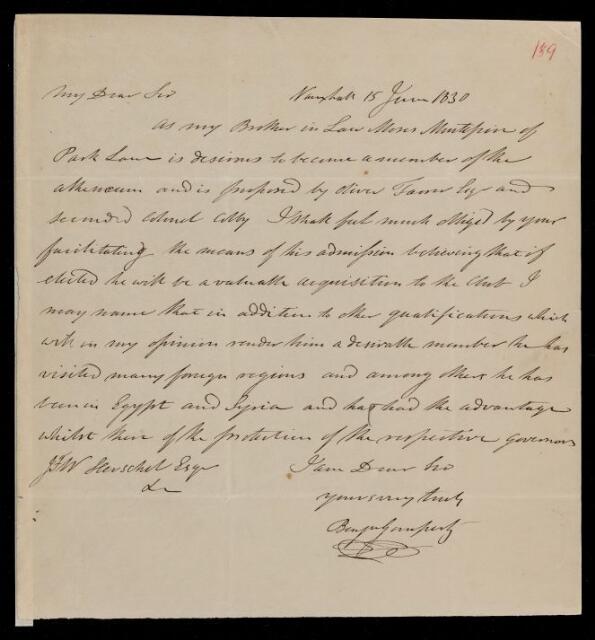 159
My Dear Sir Vauxhall 15 June 1830
As my Brother in Law Moses Montefiore of
Park Lane is desirous to become a member of the
athenæum and is proposed by Oliver Esqr and
seconded Colonel Colby I shall feel much obliged by your
facilitating the means of his admission believing that if
elected he will be a valuable acquisition to the Club I
may name that in addition to other qualifications which
will in my opinion render him a desirable member he has
visited many foreign regions and among others he has
been in Egypt and Syria and has had the advantage
whilst there of the protection of the respective governors
JFW Herschel Esqr I am Dear Sir
&c
yours very truly
Benjn Gompertz